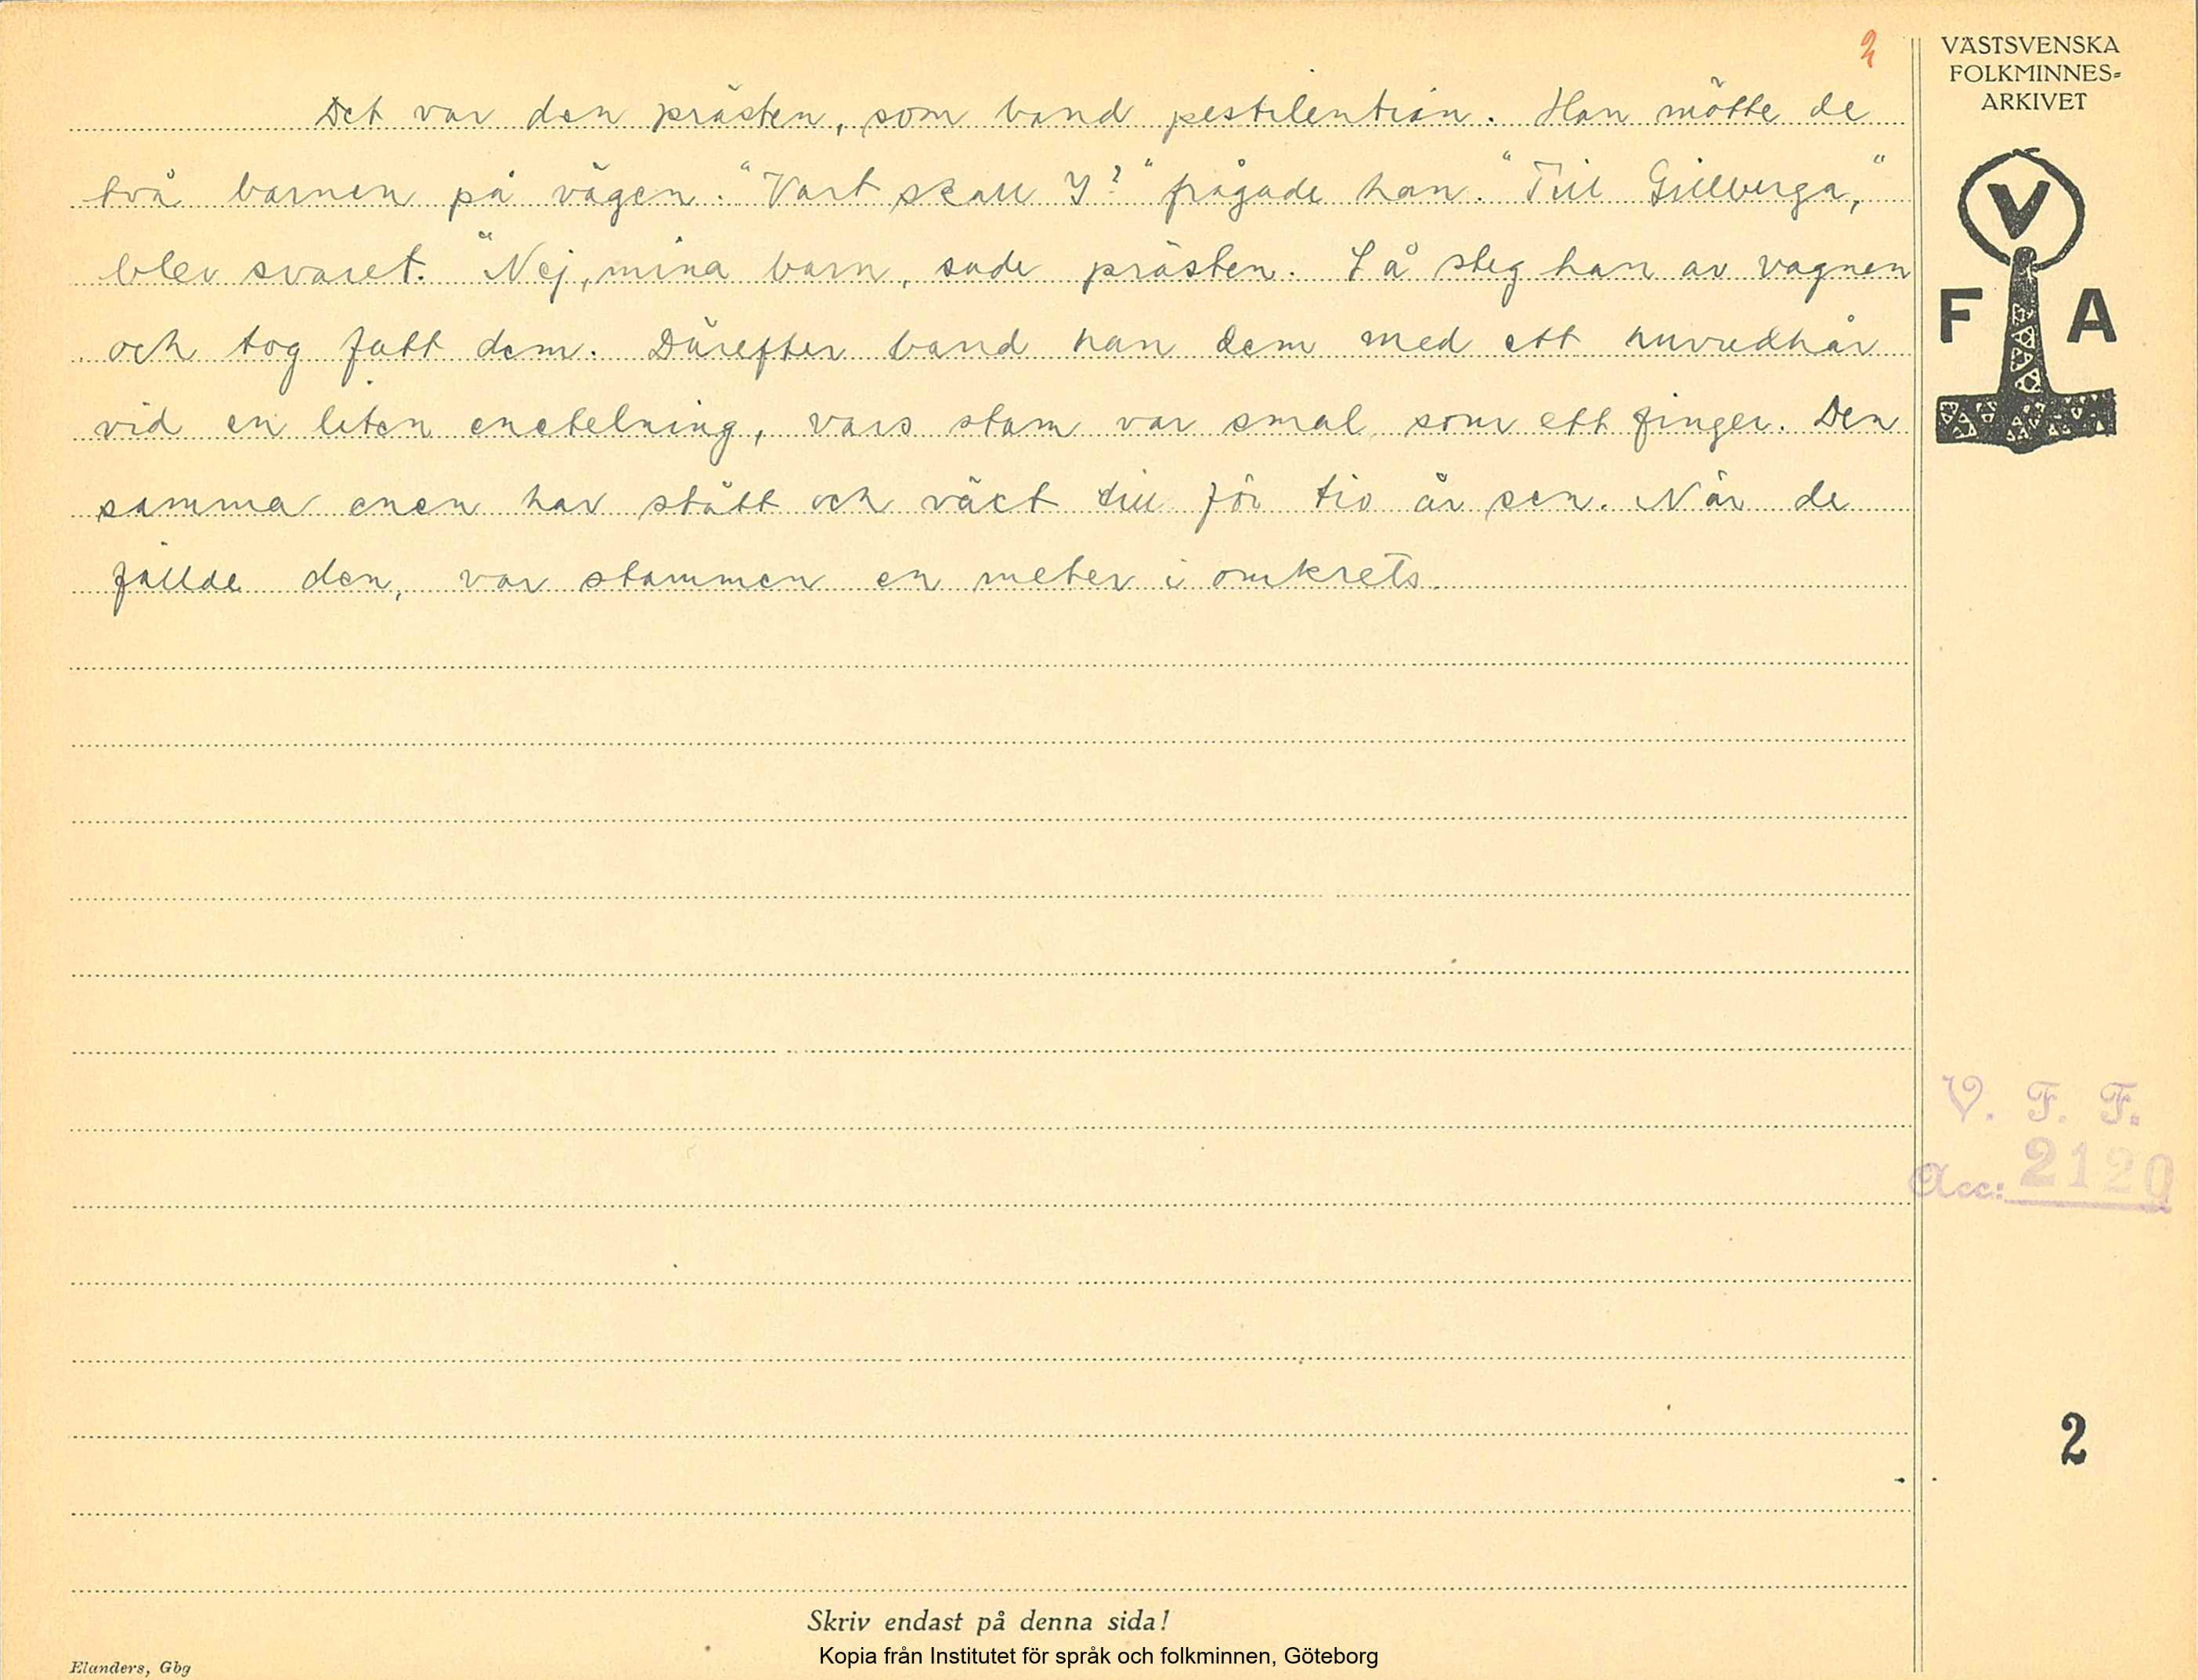 2
VÄSTSVENSKA
FOLKMINNES-
ARKIVET
V
F A
Det var den prästen, som band pestilentian. Han mötte de
två barnen på vägen. "Vart skall I?" frågade han. "Till Gillberga,"
blev svaret. "Nej, mina barn, sade prästen. Så steg han av vagnen
och tog fatt dem. Därefter band han dem med ett huvudhår
vid en liten enetelning, vars stam var smal som ett finger. Den
samma enen har stått och växt till för tio år sen. När de
fällde den, var stammen en meter i omkrets.
V. F. F.
Acc: 2120
2
Skriv endast på denna sida!
Kopia från Institutet för språk och folkminnen, Göteborg
Elanders, Gbg